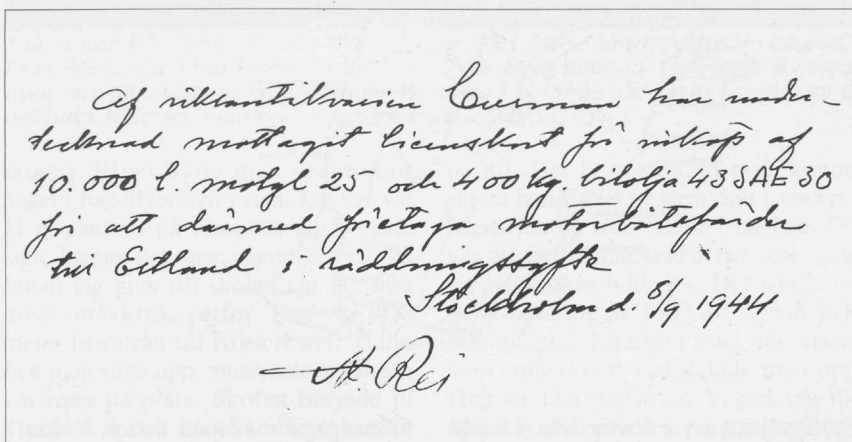 Af riksantikvarien Curman har under-
tecknad mottaget licenskort för inköp af
10.000 l. motyl 25 och 400 kg. bilolja 43 SAE 30
för att därmed företaga motorbåtsfärder
till Estland i räddningssyfte
Stockholm d. 8/9 1944
A Rei